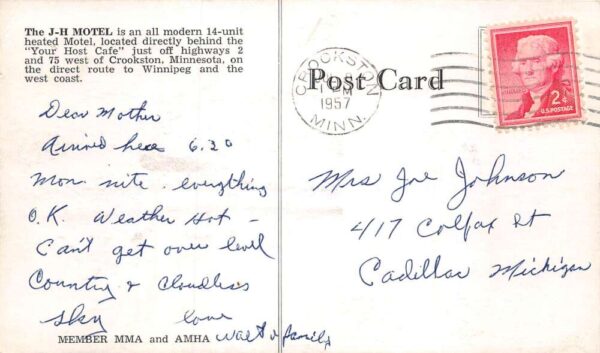 The J-H MOTEL is an all modern 14-unit
heated Motel, located directly behind the
"Your Host Cafe" just off highways 2
and 75 west of Crookston, Minnesota, on
the direct route to Winnipeg and the
west coast.
Dear Mother
Arrived here 6.30
Mon. nite. everything
O.K. Weather Hot –
Can't get over level
Country & cloudless
sky love
Walt & family
MEMBER MMA and AMHA
Post Card
CROOKSTON
PM
1957
MINN.
2¢
U.S. POSTAGE
Mrs Joe Johnson
417 Colfax St
Cadillac Michigan